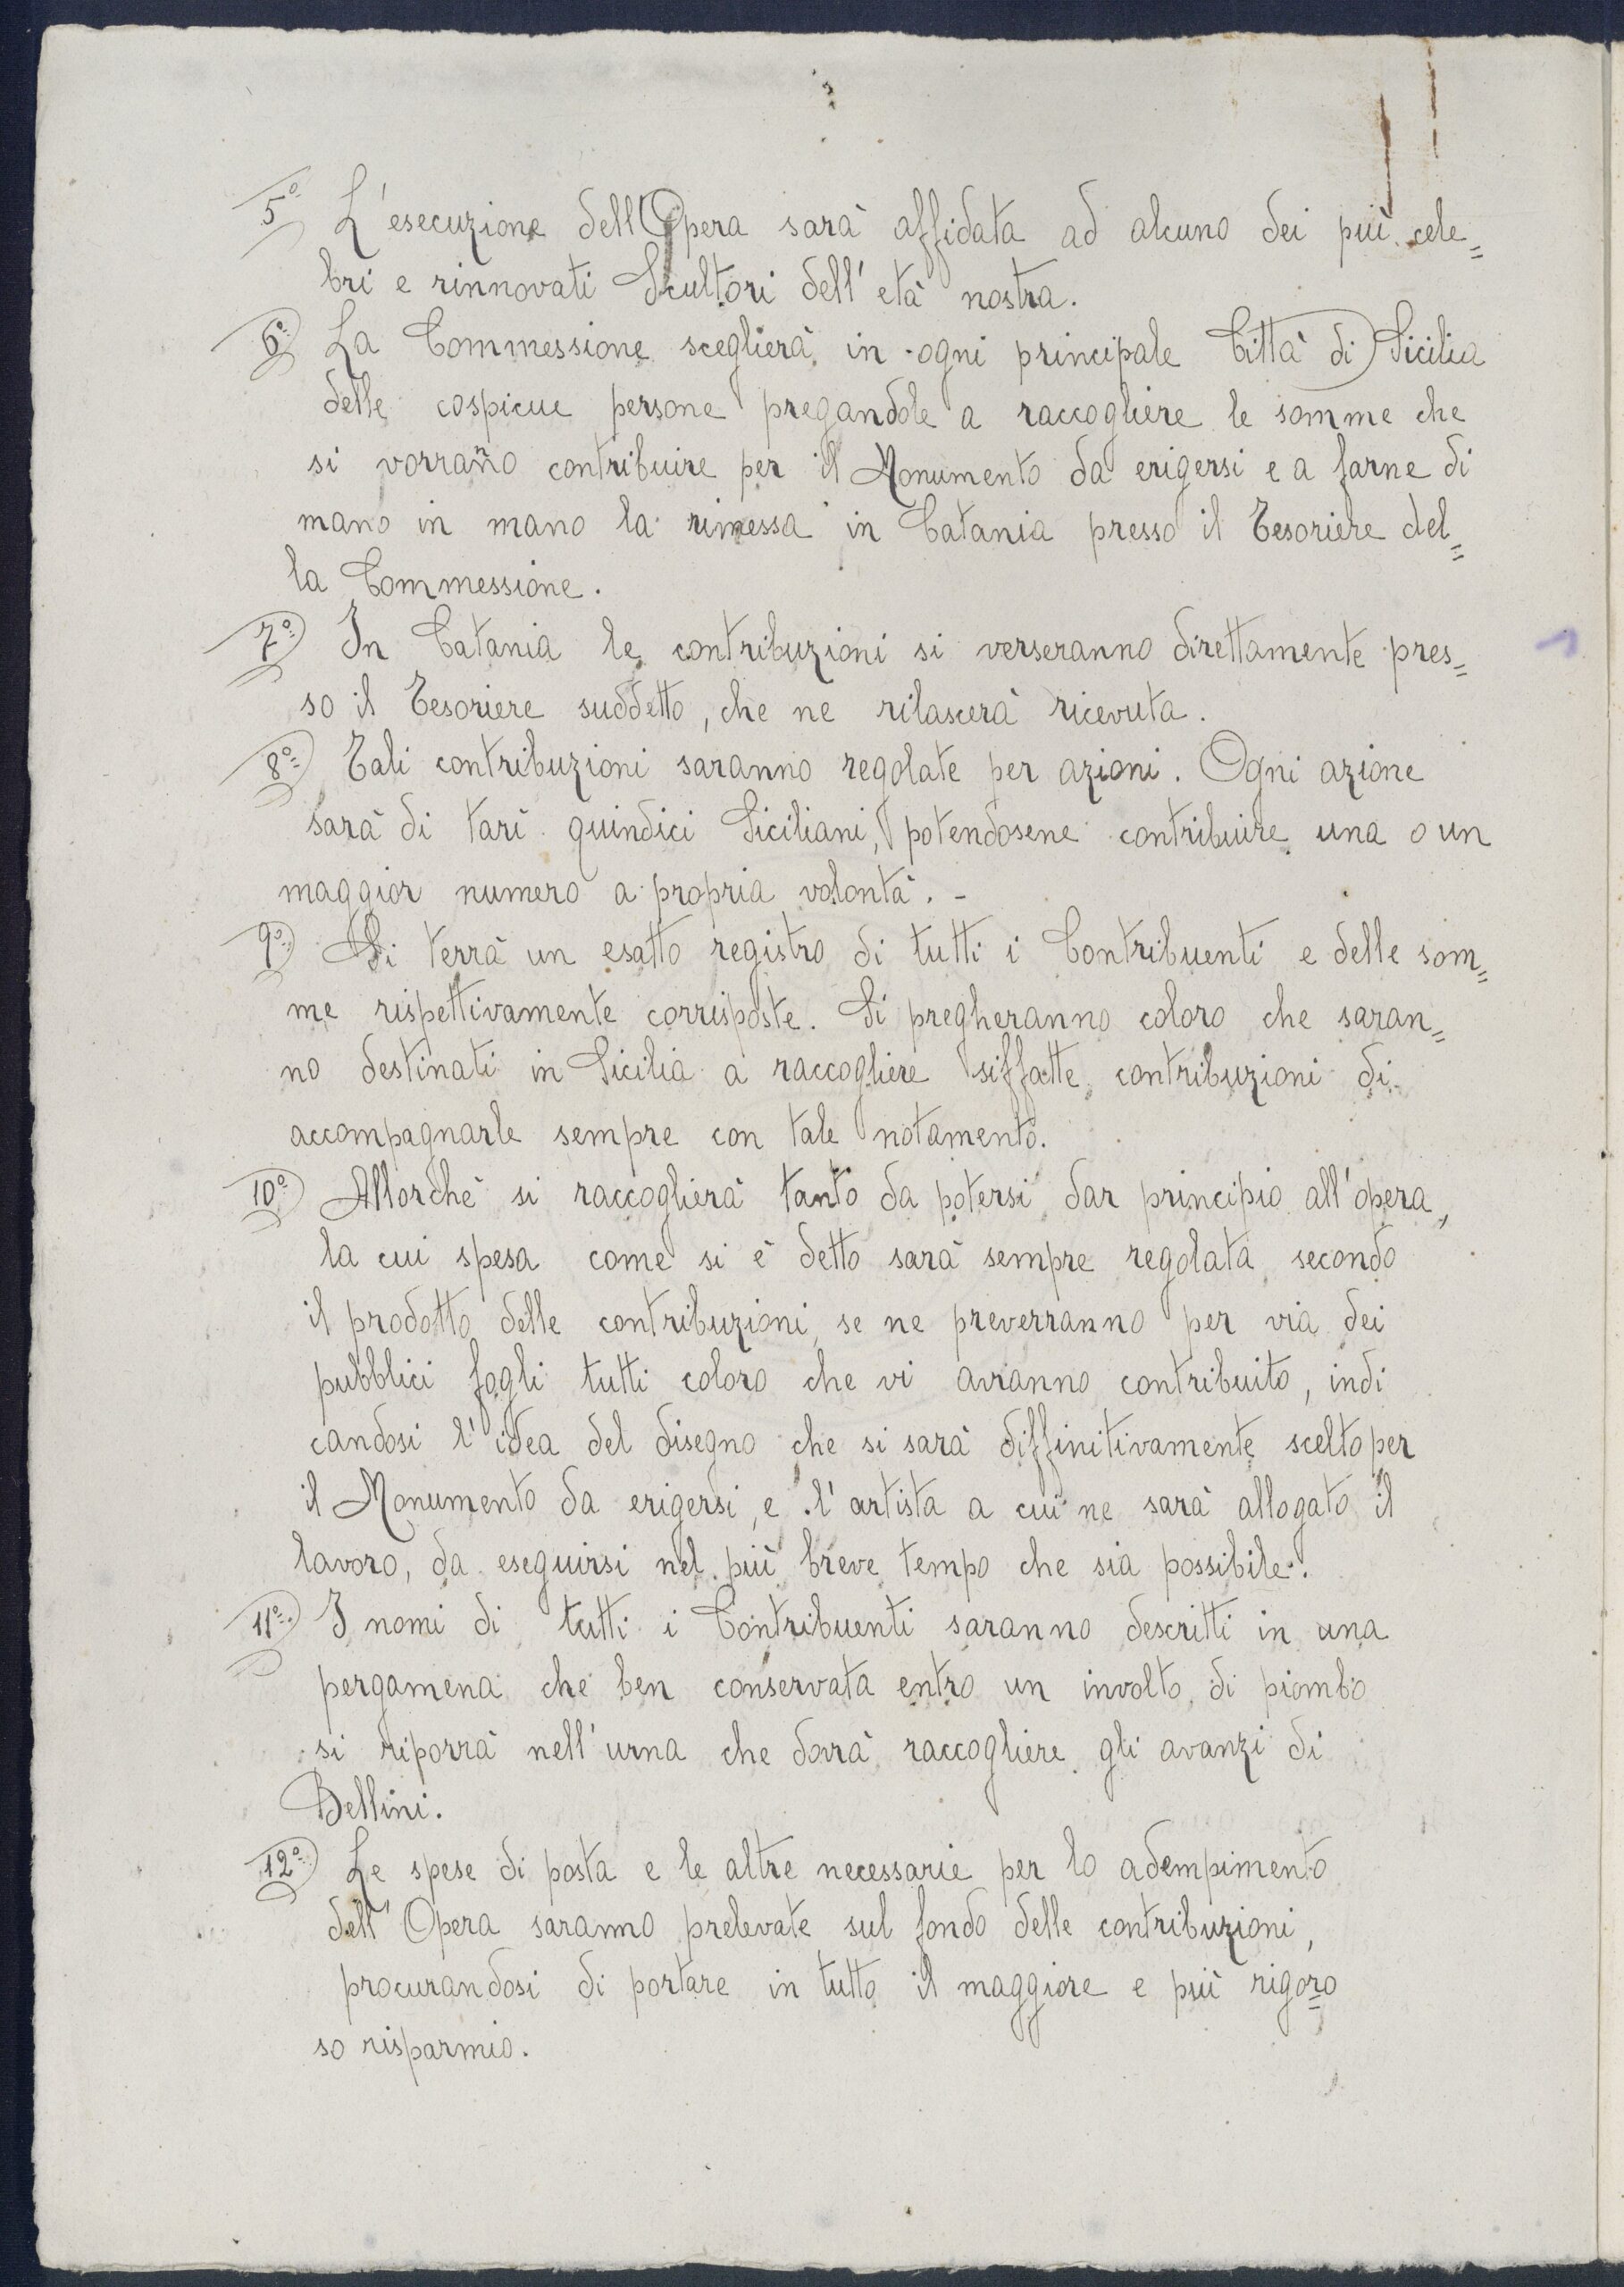 5º L'esecuzione dell'Opera sarà affidata ad alcuno dei più cele=
bri e rinnovati Scultori dell'età nostra.
6º La Commessione sceglierà in ogni principale Città di Sicilia
delle cospicue persone pregandole a raccogliere le somme che
si vorranno contribuire per il Monumento da erigersi e a farne di
mano in mano la rimessa in Catania presso il Tesoriere del=
la Commessione.
7º In Catania le contribuzioni si verseranno direttamente pres=
so il Tesoriere suddetto, che ne rilascerà ricevuta.
8º Tali contribuzioni saranno regolate per azioni. Ogni azione
sarà di tarì quindici Siciliani, potendosene contribuire una o un
maggior numero a propria volontà. -
9º Si terrà un esatto registro di tutti i Contribuenti e delle som=
me rispettivamente corrisposte. Si pregheranno coloro che saran=
no destinati in Sicilia a raccogliere siffatte contribuzioni di
accompagnarle sempre con tale notamento.
10º Allorchè si raccoglierà tanto da potersi dar principio all'opera,
la cui spesa come si è detto sarà sempre regolata secondo
il prodotto delle contribuzioni, se ne preverranno per via dei
pubblici fogli tutti coloro che vi avranno contribuito, indi
candosi l'idea del disegno che si sarà diffinitivamente scelto per
il Monumento da erigersi, e l'artista a cui ne sarà allogato il
lavoro, da eseguirsi nel più breve tempo che sia possibile.
11º I nomi di tutti i Contribuenti saranno descritti in una
pergamena che ben conservata entro un involto di piombo
si riporrà nell'urna che dovrà raccogliere gli avanzi di
Bellini.
12º Le spese di posta e le altre necessarie per lo adempimento
dell'Opera saranno prelevate sul fondo delle contribuzioni,
procurandosi di portare in tutto il maggiore e più rigoro=
so risparmio.